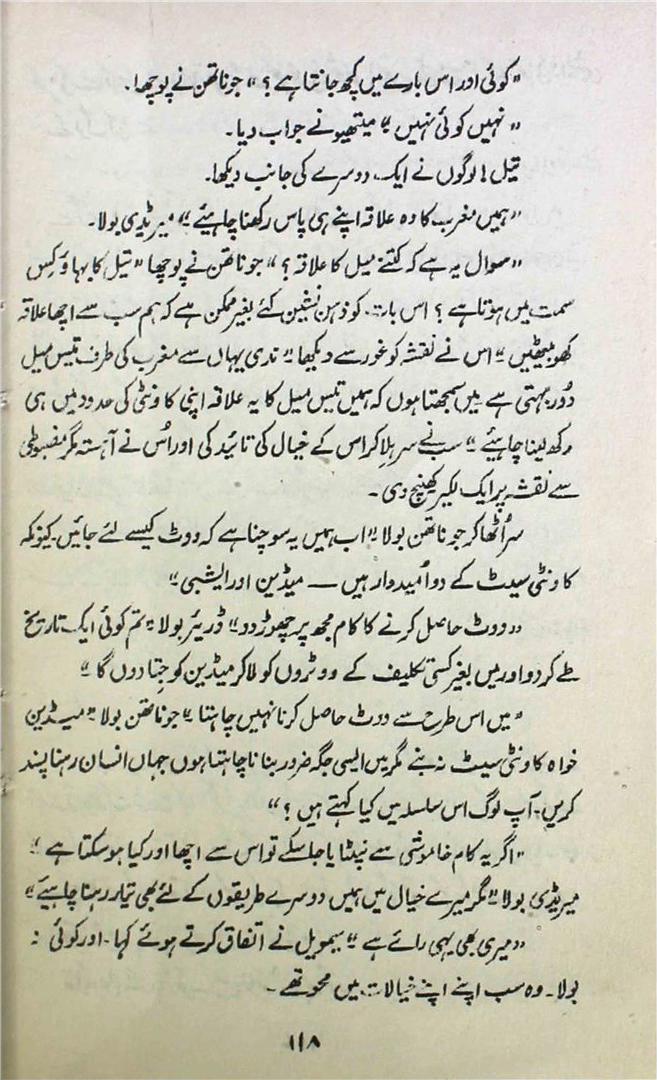 "کوئی اور اس بارے میں کچھ جانتا ہے؟" جوناتھن نے پوچھا۔
"نہیں کوئی نہیں" میتھیو نے جواب دیا۔
تیل! لوگوں نے ایک دوسرے کی جانب دیکھا۔
"ہمیں مغرب کا وہ علاقہ اپنے ہی پاس رکھنا چاہیئے" میریڈی بولا۔
"سوال یہ ہے کہ کتنے میل کا علاقہ؟" جوناتھن نے پوچھا "تیل کا بہاؤ کِس
سمت میں ہوتا ہے؟ اس بات کو ذہن نشین کئے بغیر ممکن ہے کہ ہم سب سے اچھا علاقہ
کھو بیٹھیں" اس نے نقشہ کو غور سے دیکھا "ندی یہاں سے مغرب کی طرف تیس میل
دُور بہتی ہے میں سمجھتا ہوں کہ ہمیں تیس میل کا یہ علاقہ اپنی کاؤنٹی کی حدود میں ہی
رکھ لینا چاہیئے" سب نے سر ہلا کر اس کے خیال کی تائید کی اور اُس نے آہستہ مگر مضبوطی
سے نقشہ پر ایک لکیر کھینچ دی۔
سر اُٹھا کر جوناتھن بولا "اب ہمیں یہ سوچنا ہے کہ ووٹ کیسے لئے جائیں۔ کیونکہ
کاونٹی سیٹ کے دو اُمیدوار ہیں — میڈین اور ایشبی"
"ووٹ حاصل کرنے کا کام مجھ پر چھوڑ دو" ڈریئر بولا "تم کوئی ایک تاریخ
طے کر دو اور میں بغیر کسی تکلیف کے ووٹروں کو لا کر میڈین کو جِتا دوں گا"
"میں اس طرح سے ووٹ حاصل کرنا نہیں چاہتا" جوناتھن بولا "میڈین
خواہ کاونٹی سیٹ نہ بنے مگر میں ایسی جگہ ضرور بنانا چاہتا ہوں جہاں انسان رہنا پسند
کریں۔ آپ لوگ اس سلسلہ میں کیا کہتے ہیں؟"
"اگر یہ کام خاموشی سے نپٹایا جا سکے تو اس سے اچھا اور کیا ہو سکتا ہے"
میریڈی بولا "مگر میرے خیال میں ہمیں دوسرے طریقوں کے لئے بھی تیار رہنا چاہیئے"
"میری بھی یہی رائے ہے" سیمویل نے اتفاق کرتے ہوئے کہا۔ اور کوئی نہ
بولا۔ وہ سب اپنے اپنے خیالات میں محو تھے۔
۱۱۸